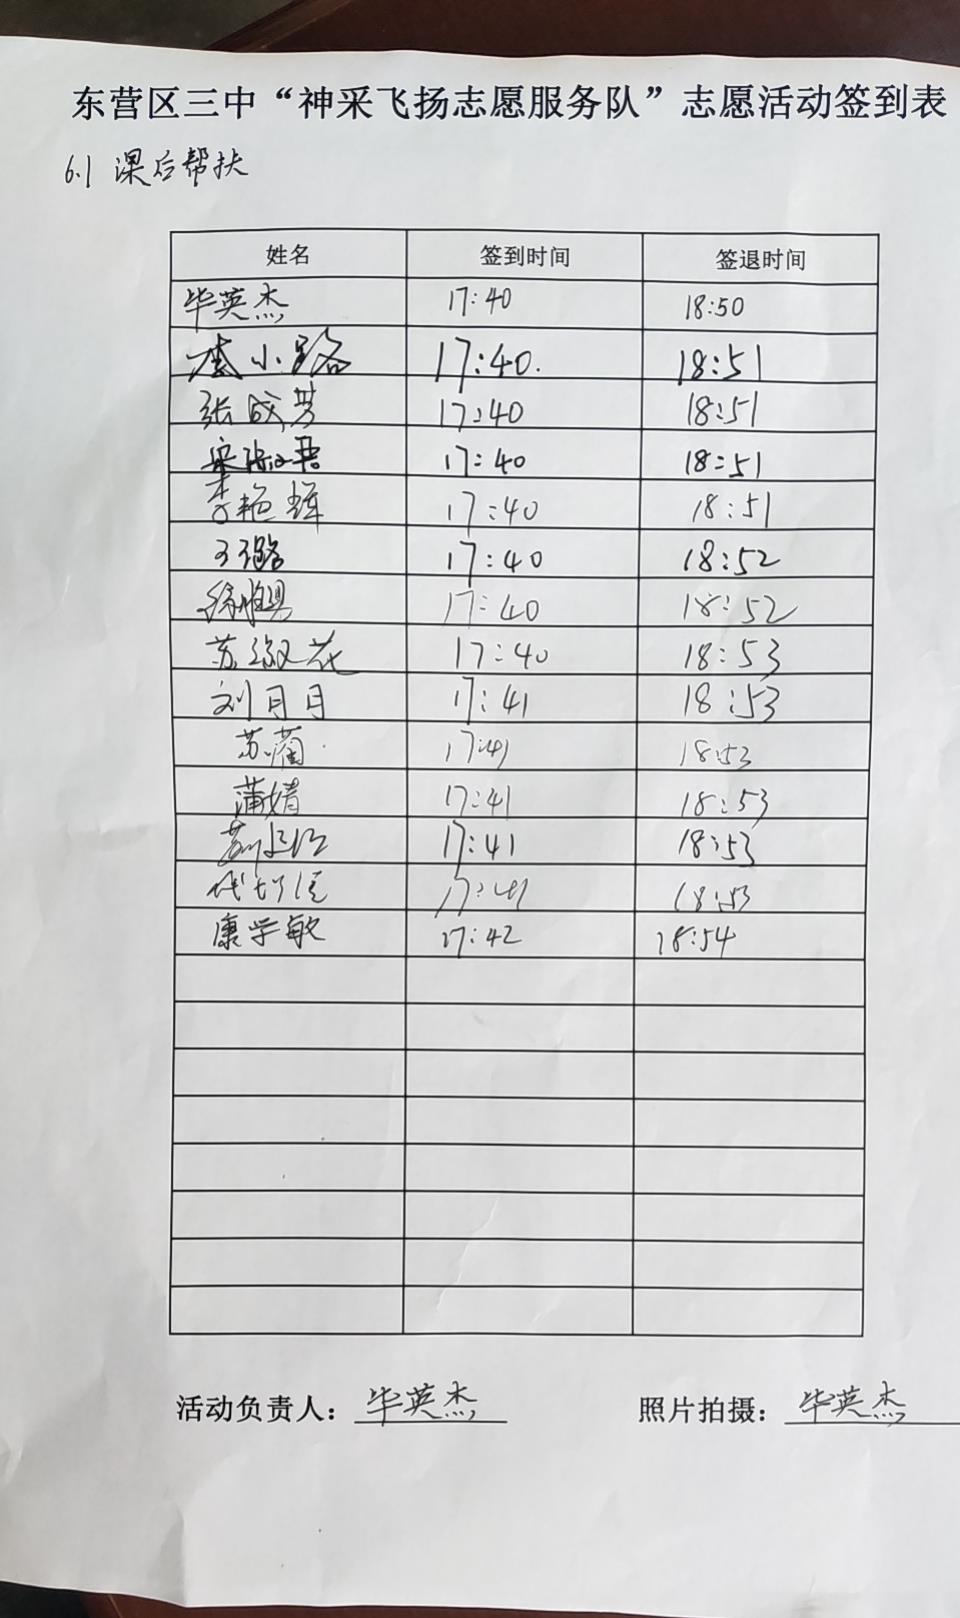 东营区三中“神采飞扬志愿服务队”志愿活动签到表
6.1 课后帮扶
姓名 签到时间 签退时间
毕英杰 17:40 18:50
李小路 17:40. 18:51
张成芳 17:40 18:51
17:40 18:51
李艳辉 17:40 18:51
王璐 17:40 18:52
17:40 18:52
苏淑花 17:40 18:53
刘月月 17:41 18:53
苏蔺 17:41 18:53
蒲婧 17:41 18:53
17:41 18:53
17:41 18:53
康学敏 17:42 18:54
活动负责人：毕英杰 照片拍摄：毕英杰